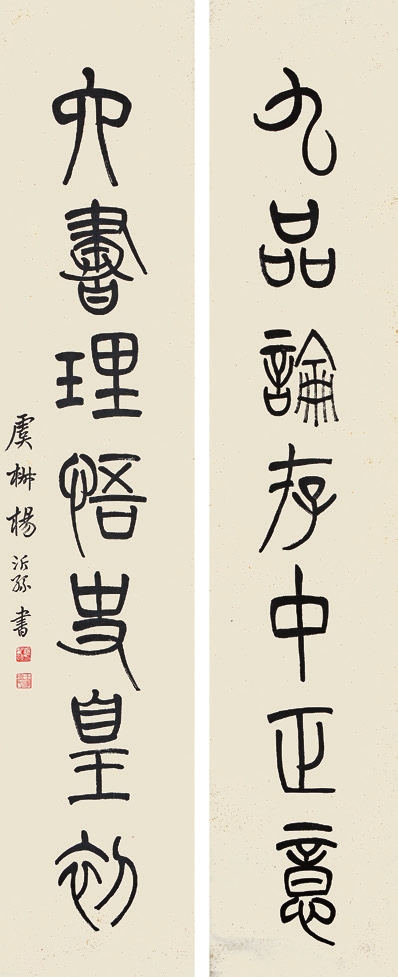 九品論存中正意
六書理悟史皇初
虞山楊沂孫書